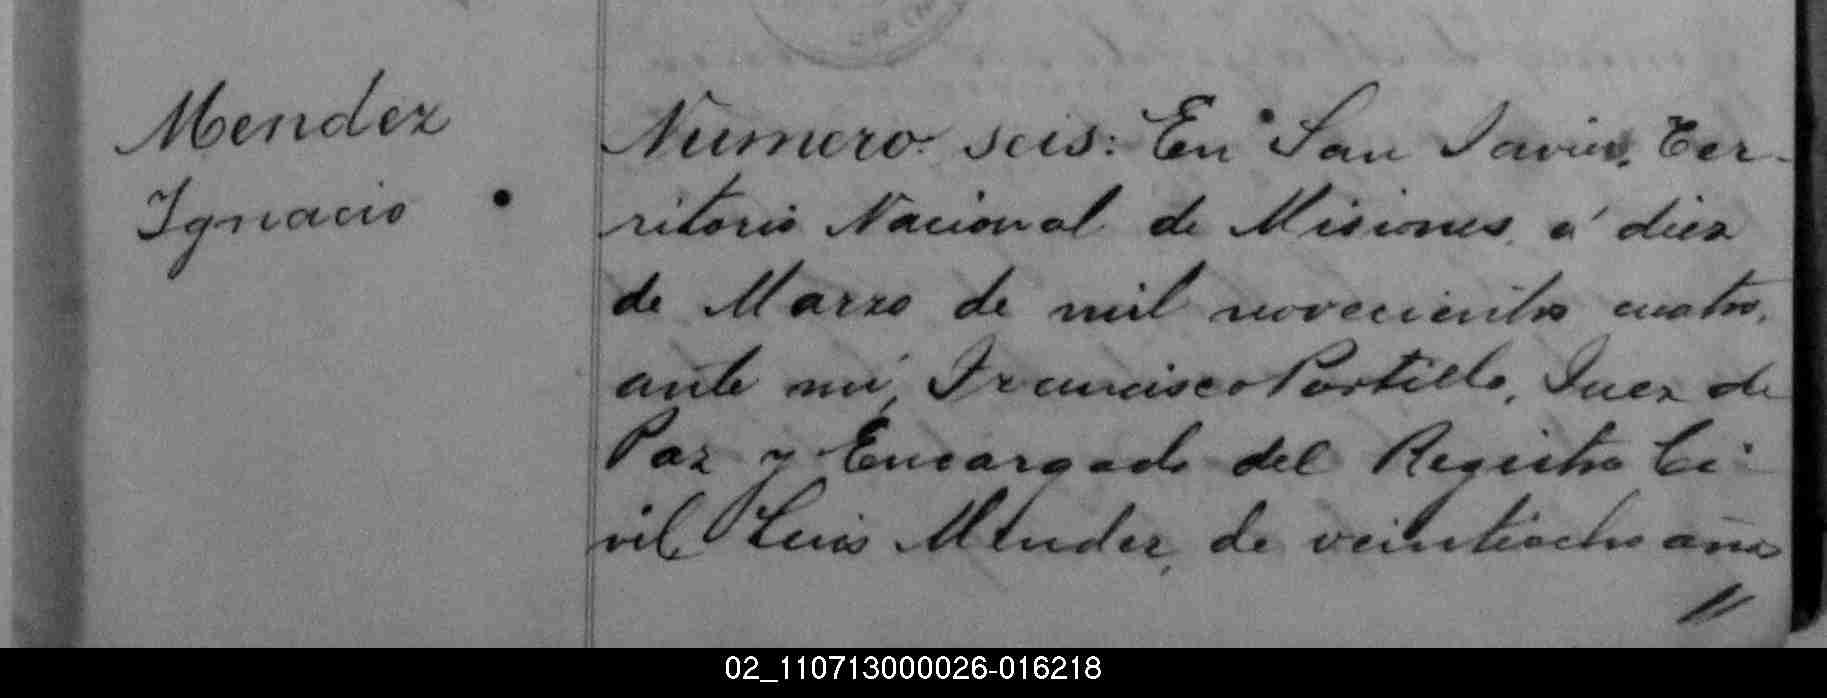 Mendez
Ignacio
Numero seis: En San Javier, Ter-
ritorio Nacional de Misiones, á diez
de Marzo de mil novecientos cuatro,
ante mí, Francisco Portillo, Juez de
Paz y Encargado del Registro Ci-
vil, Luis Mendez, de veintiocho años
02_110713000026-016218